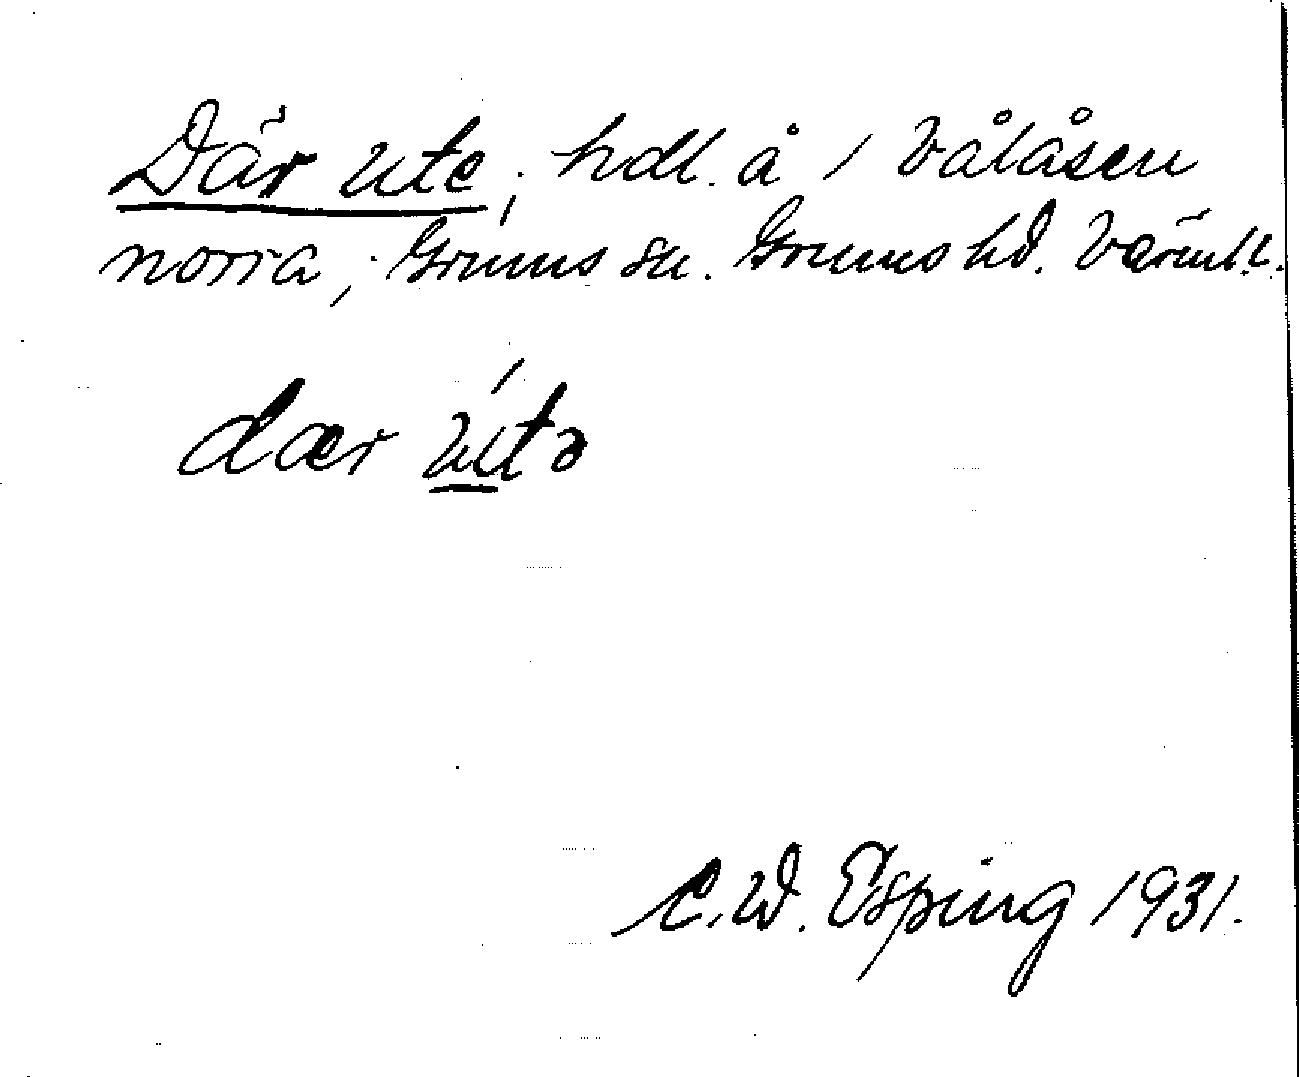 Där ute; hdl. å 1 Vålåsen
norra; Grums sn. Grums hd. Värml.
dær útə
C. W. Esping 1931.